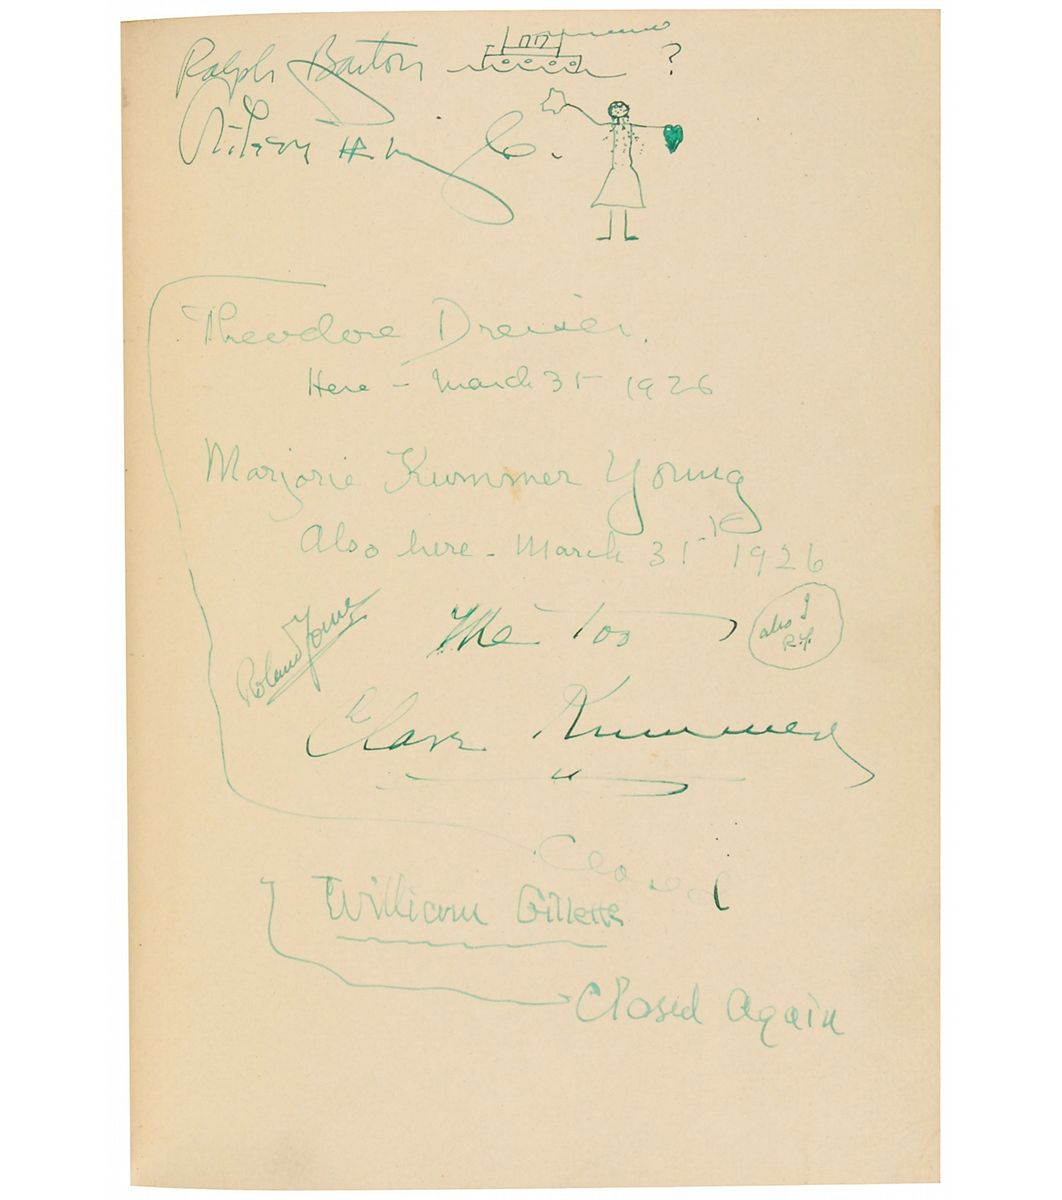 Ralph Barton ?
Theodore Dreiser.
Here - March 31 1926
Marjorie Kummer Young
Also here - March 31st 1926
Roland Young
Me too
also I
R.Y.
Clare Kummer
Closed
William Gillette
Closed Again